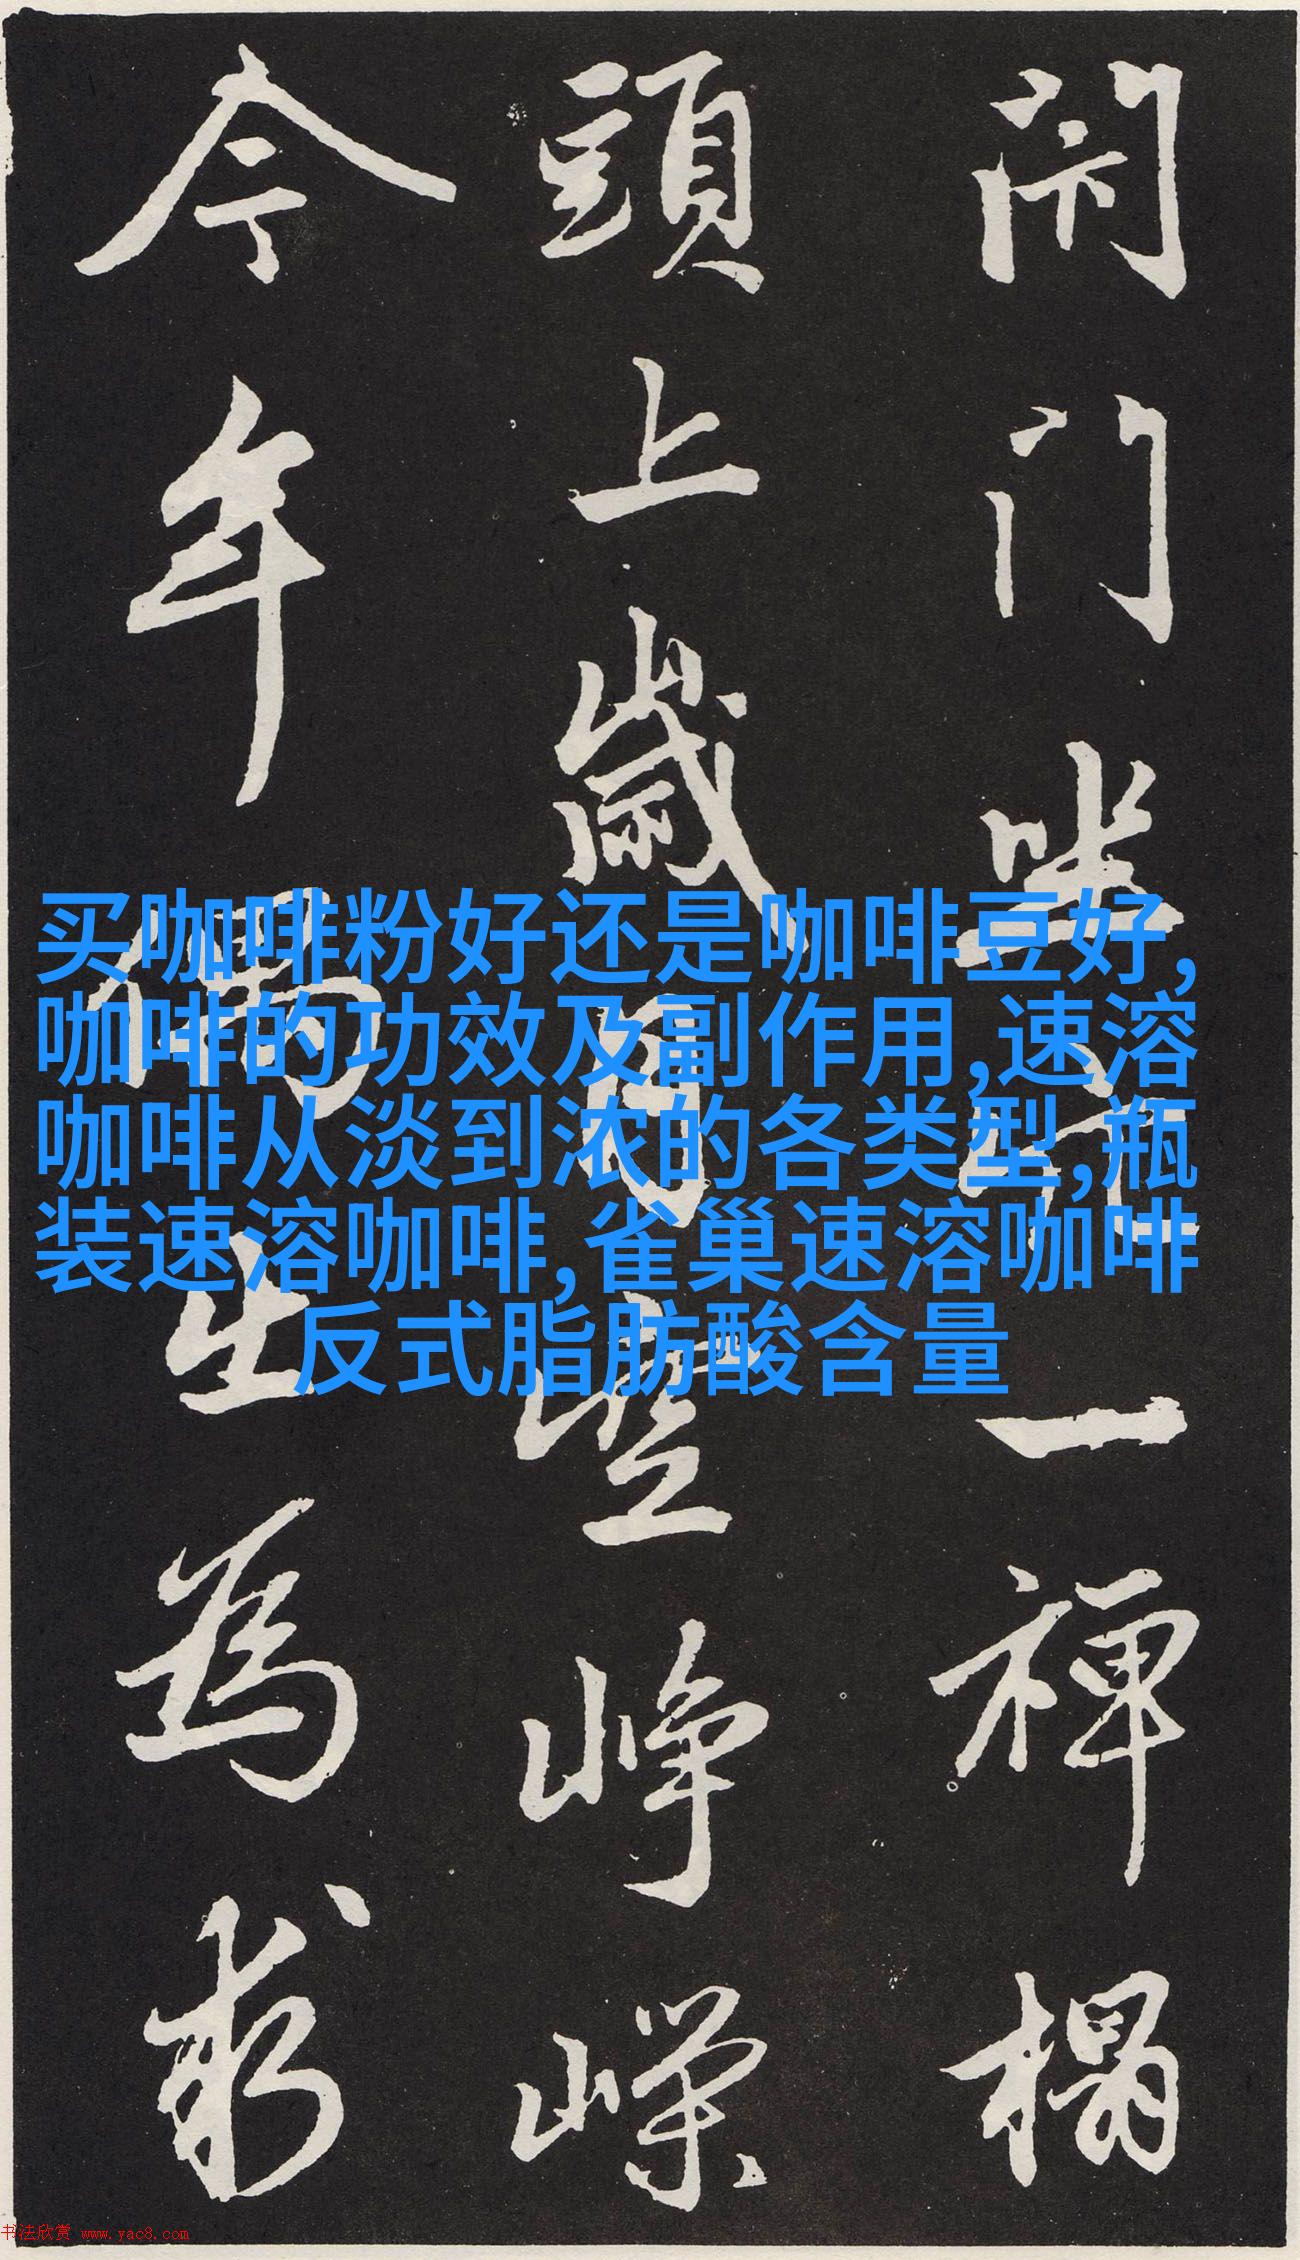 闭门坐穴一禅榻
頭上歲月空峥嵘
今年偶出為求
买咖啡粉好还是咖啡豆好,
咖啡的功效及副作用,速溶
咖啡从淡到浓的各类型,瓶
装速溶咖啡,雀巢速溶咖啡
反式脂肪酸含量
书法欣赏 www.yac8.com